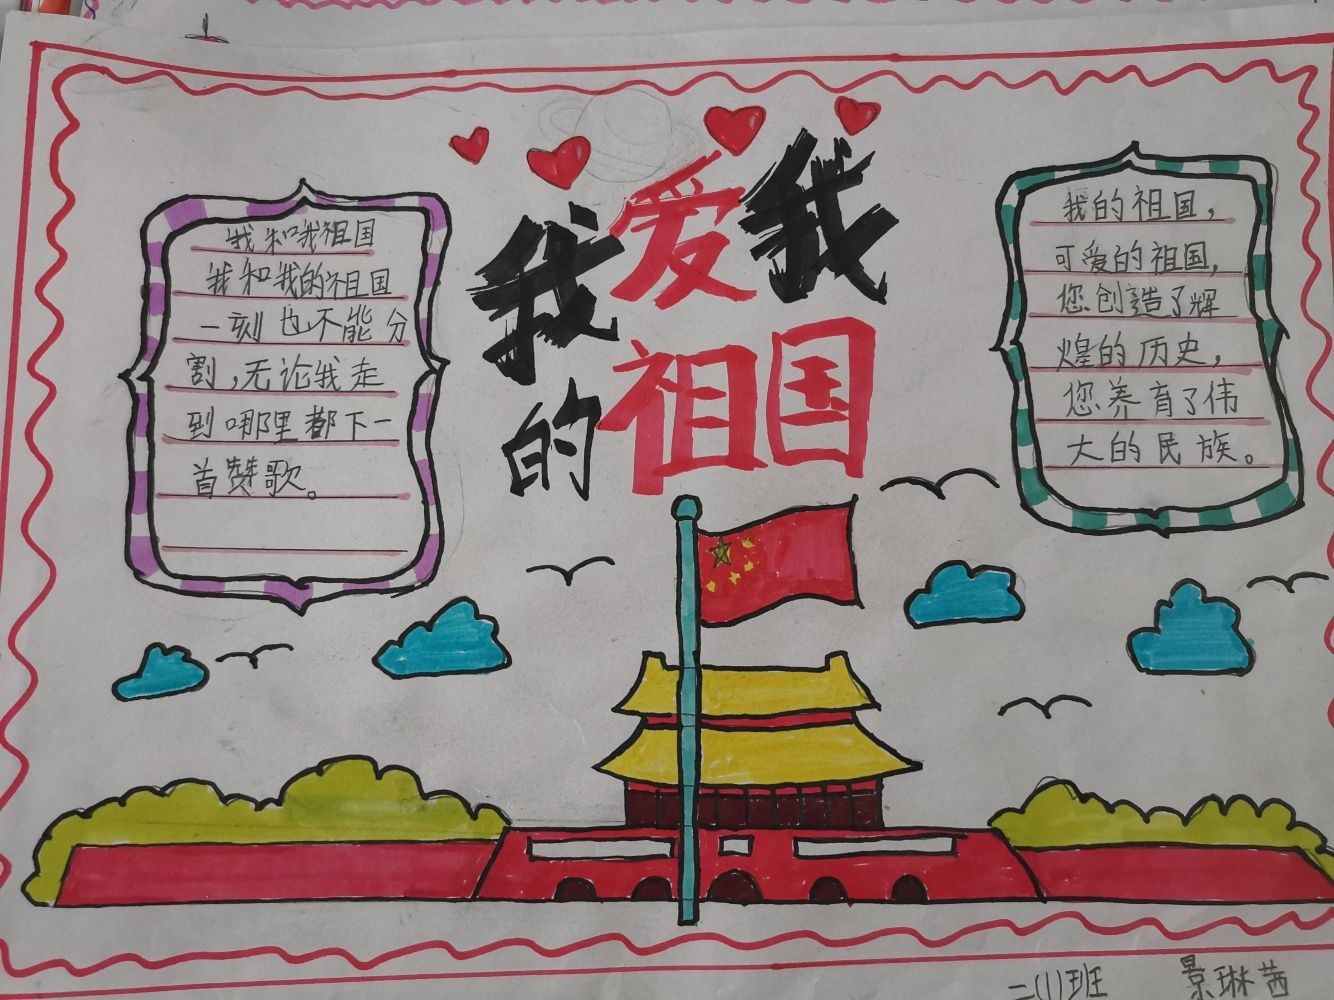 我爱我
的祖国
我和我祖国
我和我的祖国
一刻也不能分
割,无论我走
到哪里都下一
首赞歌。
我的祖国,
可爱的祖国,
您创造了辉
煌的历史,
您养育了伟
大的民族。
二(1)班 景琳茜